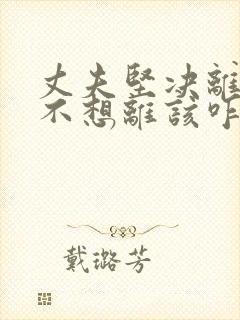 丈夫堅决離
不想離該咋
戴璐芳